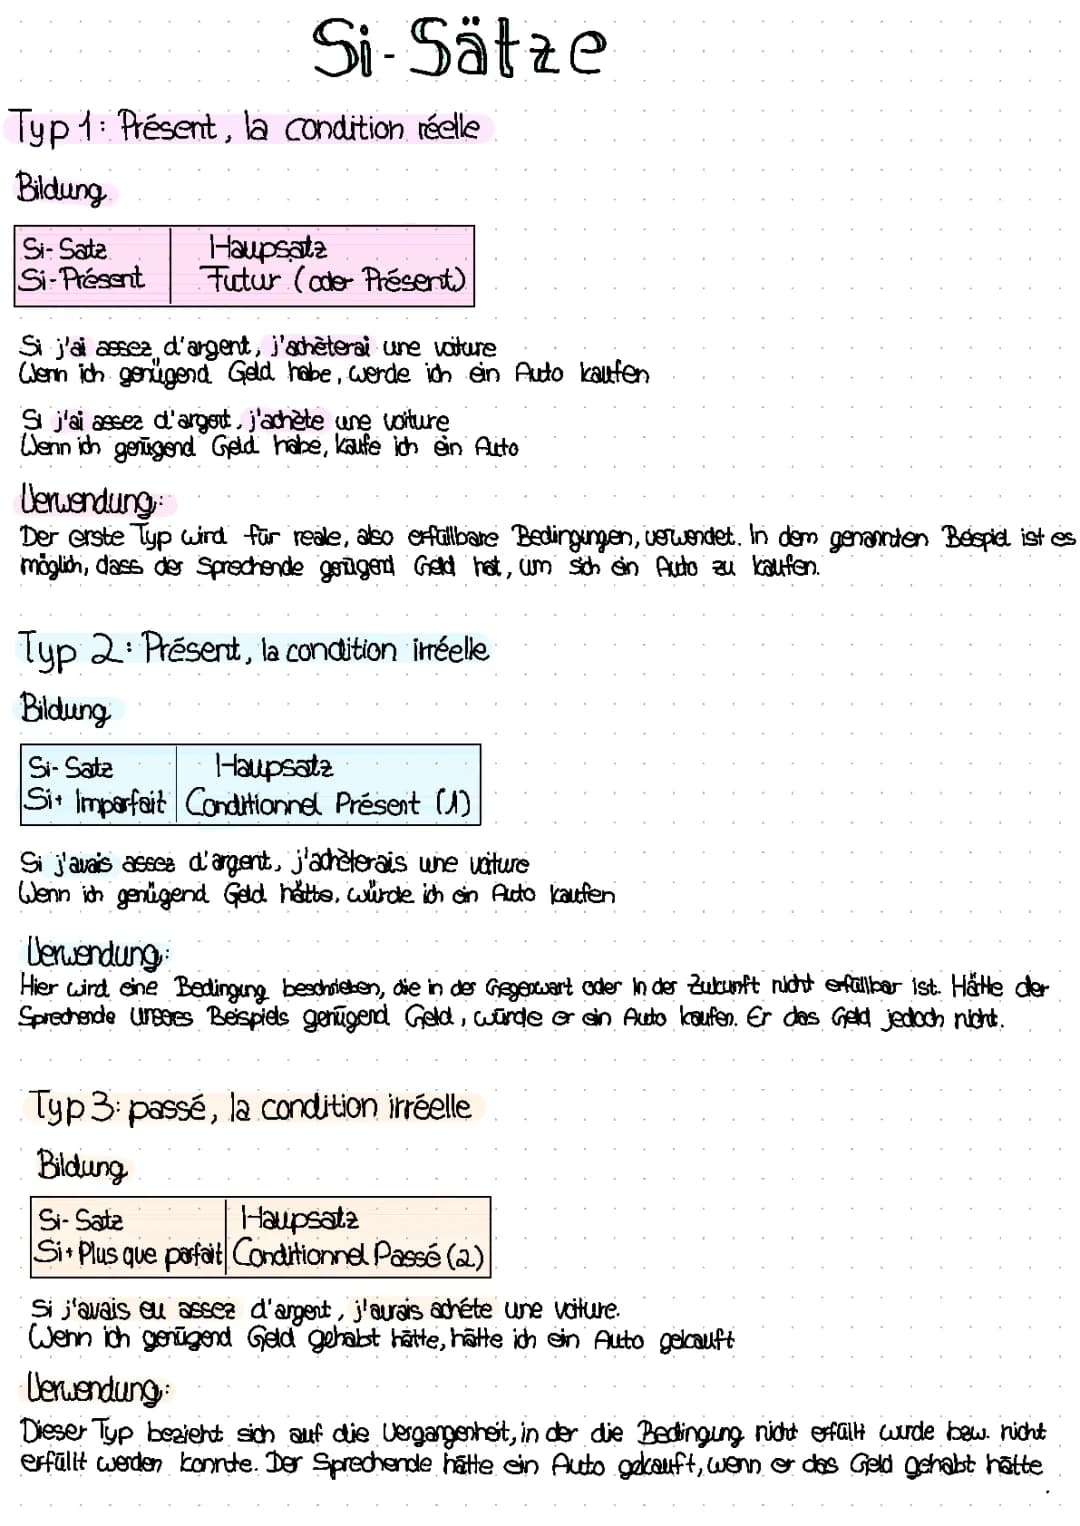 Si-Sätze
Typ 1: Présent, la condition réelle
Bildung
Si-Satz Haupsatz
Si-Présent Futur (oder Présent)
Si j'ai assez d'argent, j'achèterai une voiture
Wenn ich genügend Geld habe, werde ich ein Auto kaufen
Si j'ai assez d'argent, j'achète une voiture
Wenn ich genügend Geld habe, kaufe ich ein Auto
Verwendung:
Der erste Typ wird für reale, also erfüllbare Bedingungen, verwendet. In dem genannten Beispiel ist es
möglich, dass der Sprechende genügend Geld hat, um sich ein Auto zu kaufen.
Typ 2: Présent, la condition irréelle
Bildung
Si-Satz Haupsatz
Si+ Imparfait Conditionnel Présent (1)
Si j'avais assez d'argent, j'achèterais une voiture
Wenn ich genügend Geld hätte, würde ich ein Auto kaufen
Verwendung:
Hier wird eine Bedingung beschrieben, die in der Gegenwart oder in der Zukunft nicht erfüllbar ist. Hätte der
Sprechende unseres Beispiels genügend Geld, würde er ein Auto kaufen. Er das Geld jedoch nicht.
Typ 3: passé, la condition irréelle
Bildung
Si-Satz Haupsatz
Si+ Plus que parfait Conditionnel Passé (2)
Si j'avais eu assez d'argent, j'aurais achéte une voiture.
Wenn ich genügend Geld gehabt hätte, hätte ich ein Auto gekauft
Verwendung:
Dieser Typ bezieht sich auf die Vergangenheit, in der die Bedingung nicht erfüllt wurde bzw. nicht
erfüllt werden konnte. Der Sprechende hätte ein Auto gekauft, wenn er das Geld gehabt hätte.